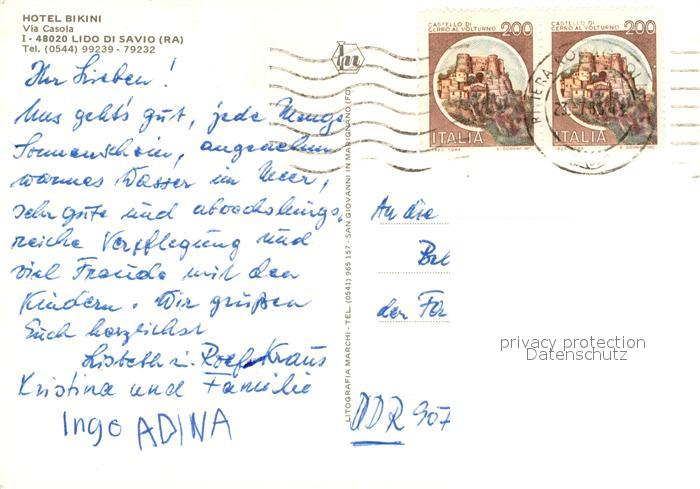 HOTEL BIKINI
Via Casola
I - 48020 LIDO DI SAVIO (RA)
Tel. (0544) 99239 - 79232
Ihr Lieben!
Uns geht's gut, jede Menge
Sonnenschein, angenehm
warmes Wasser im Meer,
sehr gute und abwechslungs-
reiche Verpflegung und
viel Freude mit den
Kindern. Wir grüßen
Euch herzlichst
Lisbeth u. Rolf Kraus
Kristina und Familie
Ingo ADINA
LITOGRAFIA MARCHI - TEL. (0541) 965 157 - SAN GIOVANNI IN MARIGNANO (FO)
CASTELLO DI
CERRO AL VOLTURNO 200
ITALIA
CASTELLO DI
CERRO AL VOLTURNO 200
ITALIA
RIVIERA
An die
der
DDR 907
privacy protection
Datenschutz